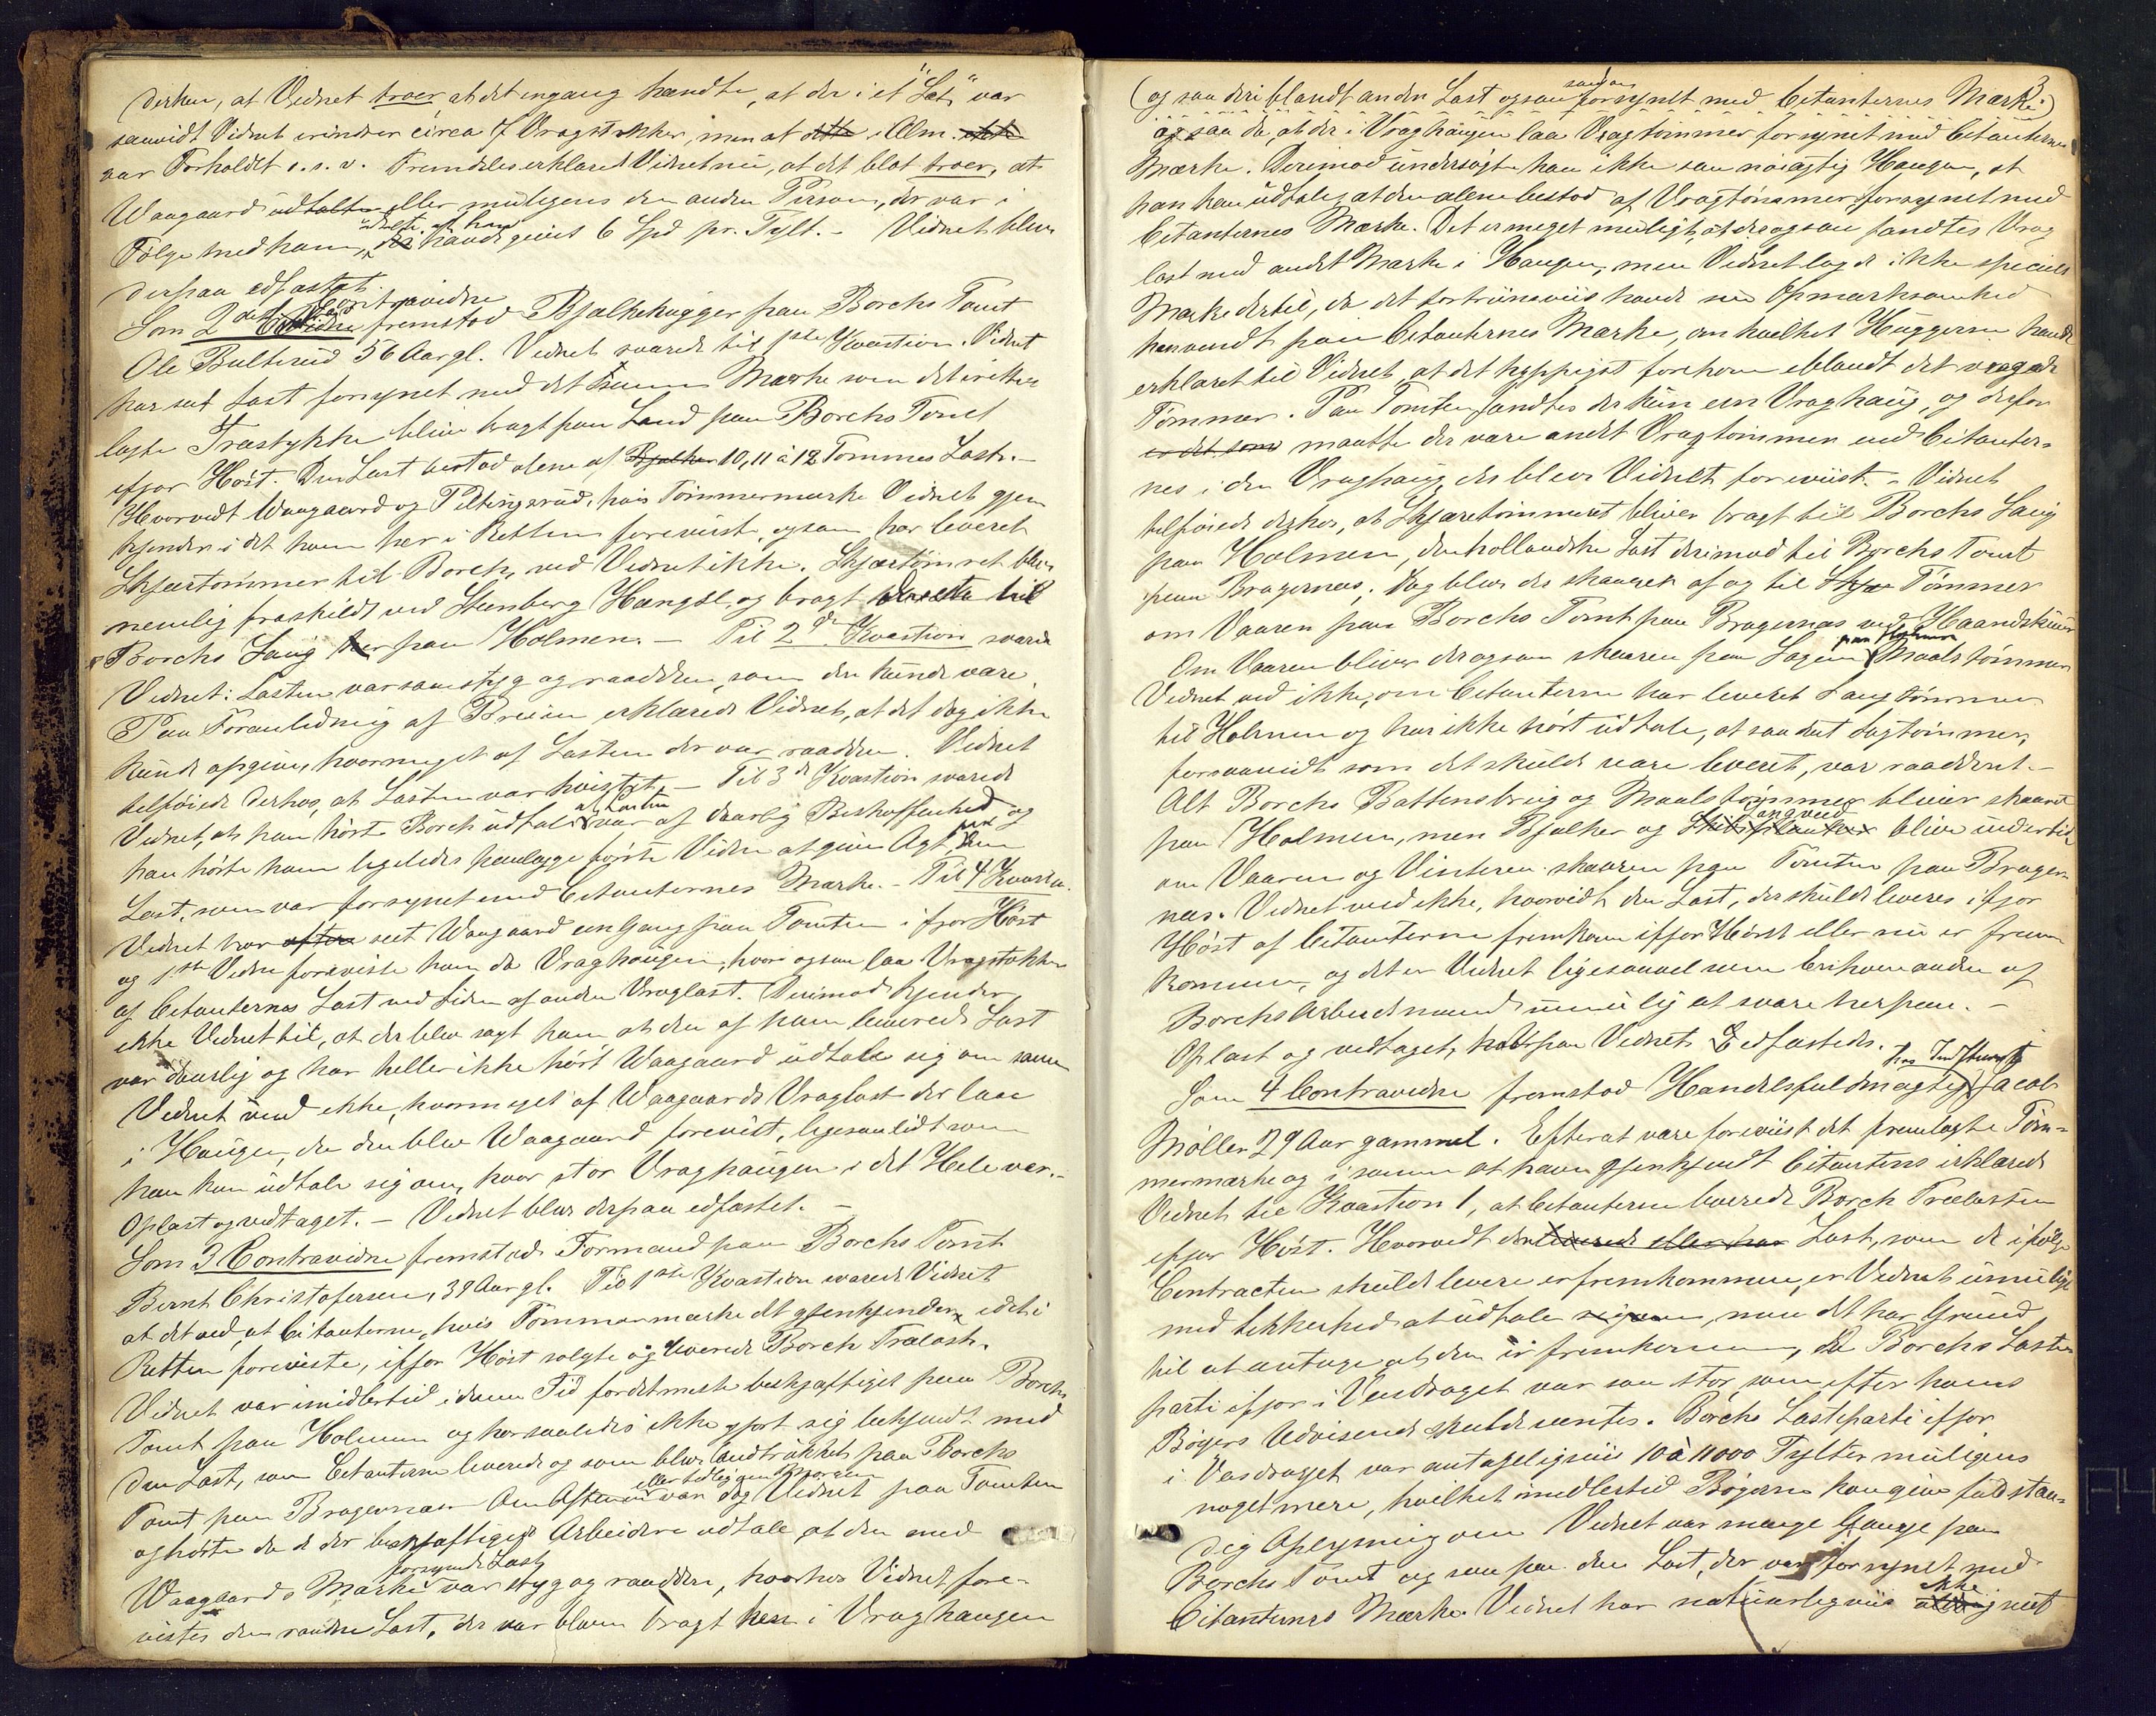 derhen, at Vidnet troer at det engang hændte, at der i et "Læt" var
saavidt Vidnet erindrer circa 7 Vragstokker, men at dette i Alm. ikke
var Forholdet o.s.v. Fremdeles erklared Vidnet nu, at det blot troer, at
Waagaard udtalte eller muligens den anden Person, der var i
Følge med ham, at han havde givet 6 Spd pr. Tylt. - Vidnet blev
derpaa edfæstet.
Som 2det Contravidne fremstod Bjælkehugger paa Borchs Tomt
Ole Bulterud 56 Aar gl. Vidnet svarede til 1ste Kvæstion. Vidnet
har seet Last forsynet med det Tømmer Mærke som det i Retten
lagte Træstykke blive bragt paa Land paa Borchs Tomt
ifjor Høst. Den Last bestod alene af Bjælker 10, 11 à 12 Tommes Last. -
Hvorvidt Waagaard og Piltingsrud, hvis Tømmermærke Vidnet gjen
kjender i det ham her i Retten foreviste, ogsaa har leveret
Skjærtømmer til Borch, ved Vidnet ikke. Skjærtømret blev
nemlig fraskildt ved Steenberg Hængsl. og bragt directe til
Borchs Saug her paa Holmen. - Til 2den Kvæstion svared
Vidnet: Lasten var saa styg og raadden, som den kunde være.
Paa Foranledning af Breien erklærede Vidnet, at det dog ikke
kunde opgive, hvormeget af Lasten der var raadden. Vidnet
tilføiede derhos, at Lasten var kvistet. - Til 3die Kvæstion svarede
Vidnet, at han hørte Borch udtale at Lasten var af daarlig Beskaffenhed og
han hørte ham ligeledes paalægge første Vidne at give Agt paa den
Last, som var forsynet med Citanternes Mærke. - Til 4 Kvæstion.
Vidnet har oftere seet Waagaard en Gang paa Tomten i fjor Høst
og 1ste Vidne foreviste ham da Vraghaugen, hvori ogsaa laa Vragstokke
af Citanternes Last ved Siden af anden Vraglast. Derimod kjender
ikke Vidnet til, at der blev sagt ham at den af ham leverede Last
var daarlig og har heller ikke hørt Waagaard udtale sig om samme
Vidnet ved ikke, hvormeget af Waagaards Vraglast der laae
i Haugen, da den blev Waagaard forevist, ligesaalidt som
han kan udtale sig om, hvor stor Vraghaugen i det Hele var. -
Oplæst og vedtaget. - Vidnet blev derpaa edfæstet. -
Som 3 Contravidne fremstod Formand paa Borchs Tomt
Bernt Christofersen, 39 Aar gl. Til 1ste Kvæstion svarede Vidnet
at det ved, at Citanterne, hvis Tømmermærke det gjenkjender i det i
Retten foreviste, ifjor Høst solgte og leverede Borch Trælast.
Vidnet var imidlertid i denne Tid fordetmeste beskjæftiget paa Borchs
Tomt paa Holmen og har saaledes ikke gjort sig bekjendt med
den Last, som Citanterne leverede og som blev landtrukket paa Borchs
Tomt paa Bragernæs. Om Aftenen eller tidlig om Morgenen var dog Vidnet paa Tomten
og hørte da de der beskjæftigede Arbeidere udtale at den med
Waagaards Mærke forsynede Last var styg og raadden, hvorhos Vidnet fore-
vistes den raadne Last, der var bleven bragt hen i Vraghaugen
(og saa deriblandt anden Last ogsaa saadan forsynet med Citanternes Mærke)
og saa da, at der i Vraghaugen laa Vragtømmer forsynet med Citanternes
Mærke. Derimod undersøgte han ikke saa nøiagtig Haugen, at
han kan udtale, at den alene bestod af Vragtømmer forsynet med
Citanternes Mærke. Det er meget muligt, at der ogsaa fandtes Vrag
last med andet Mærke i Haugen, men Vidnet lagde ikke specielt
Mærke dertil, da det fortrinsviis havde sin Opmærksomhed
henvendt paa Citanternes Mærke, om hvilket Huggerne havde
erklæret til Vidnet, at det hyppigst forekom iblandt det vragede
Tømmer. Paa Tomten fandtes der kun een Vraghaug, og derfor
er det som maatte der være andet Vragtømmer end Citanter-
nes i den Vraghaug, der blev Vidnet foreviist. - Vidnet
tilføiede derhos, at Skjæretømmeret bliver bragt til Borchs Saug
paa Holmen, den hollandske Last derimod til Borchs Tomt
paa Bragernæs. Dog blev der skaaren af og til Skjær Tømmer
om Vaaren paa Borchs Tomt paa Bragernæs ved Haandskuur
Om Vaaren bliver der ogsaa skaaren paa Sagen paa Holmen Maalstømmer
Vidnet ved ikke, om Citanterne har leveret Saugtømmer
til Holmen og har ikke hørt udtale, at saadant Sagtømmer,
forsaavidt som det skulde være leveret, var raaddent. -
Alt Borchs Battensbrug og Maalstømmer bliver skaaret
paa Holmen, men Bjælker og Skibsplanker blive undertiden
om Vaaren og Vinteren skaaren paa Tomten paa Brager-
næs. Vidnet ved ikke, hvorvidt den Last, der skulde leveres ifjor
Høst af Citanterne fremkom ifjor Høst eller nu er frem
kommen, og det er Vidnet ligesaavel som Enhver anden af
Borchs Arbeidsmænd umulig at svare herpaa. -
Oplæst og vedtaget, hvorpaa Vidnet Edfæstedes.
Som 4 Contravidne fremstod Handelsfuldmægtig hos Indstevnte Jacob
Møller 29 Aar gammel. Efterat være foreviist det fremlagte Tøm-
mermærke og i samme at have gjenkjendt Citantens erklærede
Vidnet til Kvæstion 1, at Citanterne leverede Borch Trælasten
ifjor Høst. Hvorvidt den leverede eller har Last, som de ifølge
Contracten skulde levere er fremkommen, er Vidnet umuligt
med Sikkerhed at udtale sig om, men det har Grund
til at antage at den er fremkommen, da Borchs Laste
parti ifjor i Vasdraget var saa stor som efter hans
Bøgers Udvisende skulde ventes. Borchs Lasteparti ifjor
i Vasdraget var antageligviis 10 à 11000 Tylter muligens
noget mere, hvilket imidlertid Bøgerne kan give fuldstæn-
dig Oplysning om Vidnet var mange Gange paa
Borchs Tomt og saa paa den Last, der var forsynet med
Citanternes Mærke. Vidnet har naturligviis ikke